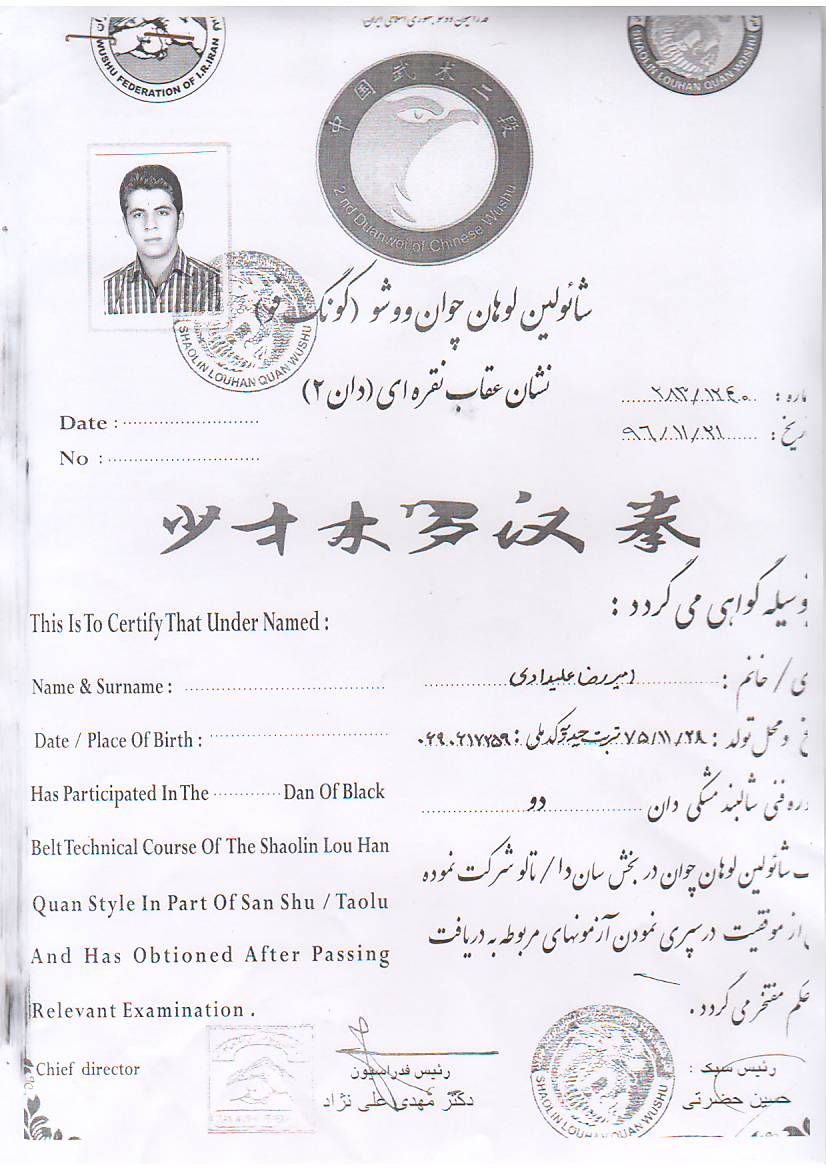 WUSHU FEDERATION OF I.R.IRAN
SHAOLIN LOUHAN QUAN WUSHU
中国武术二段
2 nd Duanwei of Chinese Wushu
SHAOLIN LOUHAN QUAN WUSHU
شائولین لوهان چوان ووشو (گونگ فو)
نشان عقاب نقره ای (دان ۲)
۲۸۳/۱۲۴۰
Date :
۹۶/۱۱/۲۱
No :
少才木罗汉 拳
وسیله گواهی می گردد :
This Is To Certify That Under Named :
ی / خانم : امیررضا علیدادی
Name & Surname :
خ و محل تولد : ۷۵/۱۱/۲۸ تربت حیدریه کدملی :
Date / Place Of Birth :
ره فنی شالبند مشکی دان دو
Has Participated In The Dan Of Black
Belt Technical Course Of The Shaolin Lou Han
شائولین لوهان چوان در بخش سان دا / تالو شرکت نموده
Quan Style In Part Of San Shu / Taolu
از موفقیت در سپری نمودن آزمونهای مربوطه به دریافت
And Has Obtioned After Passing
کم مفتخر می گردد .
Relevant Examination .
Chief director
رئیس فدراسیون
دکتر مهدی علی نژاد
رئیس سبک :
حسین حضرتی
SHAOLIN LOUHAN QUAN WUSHU